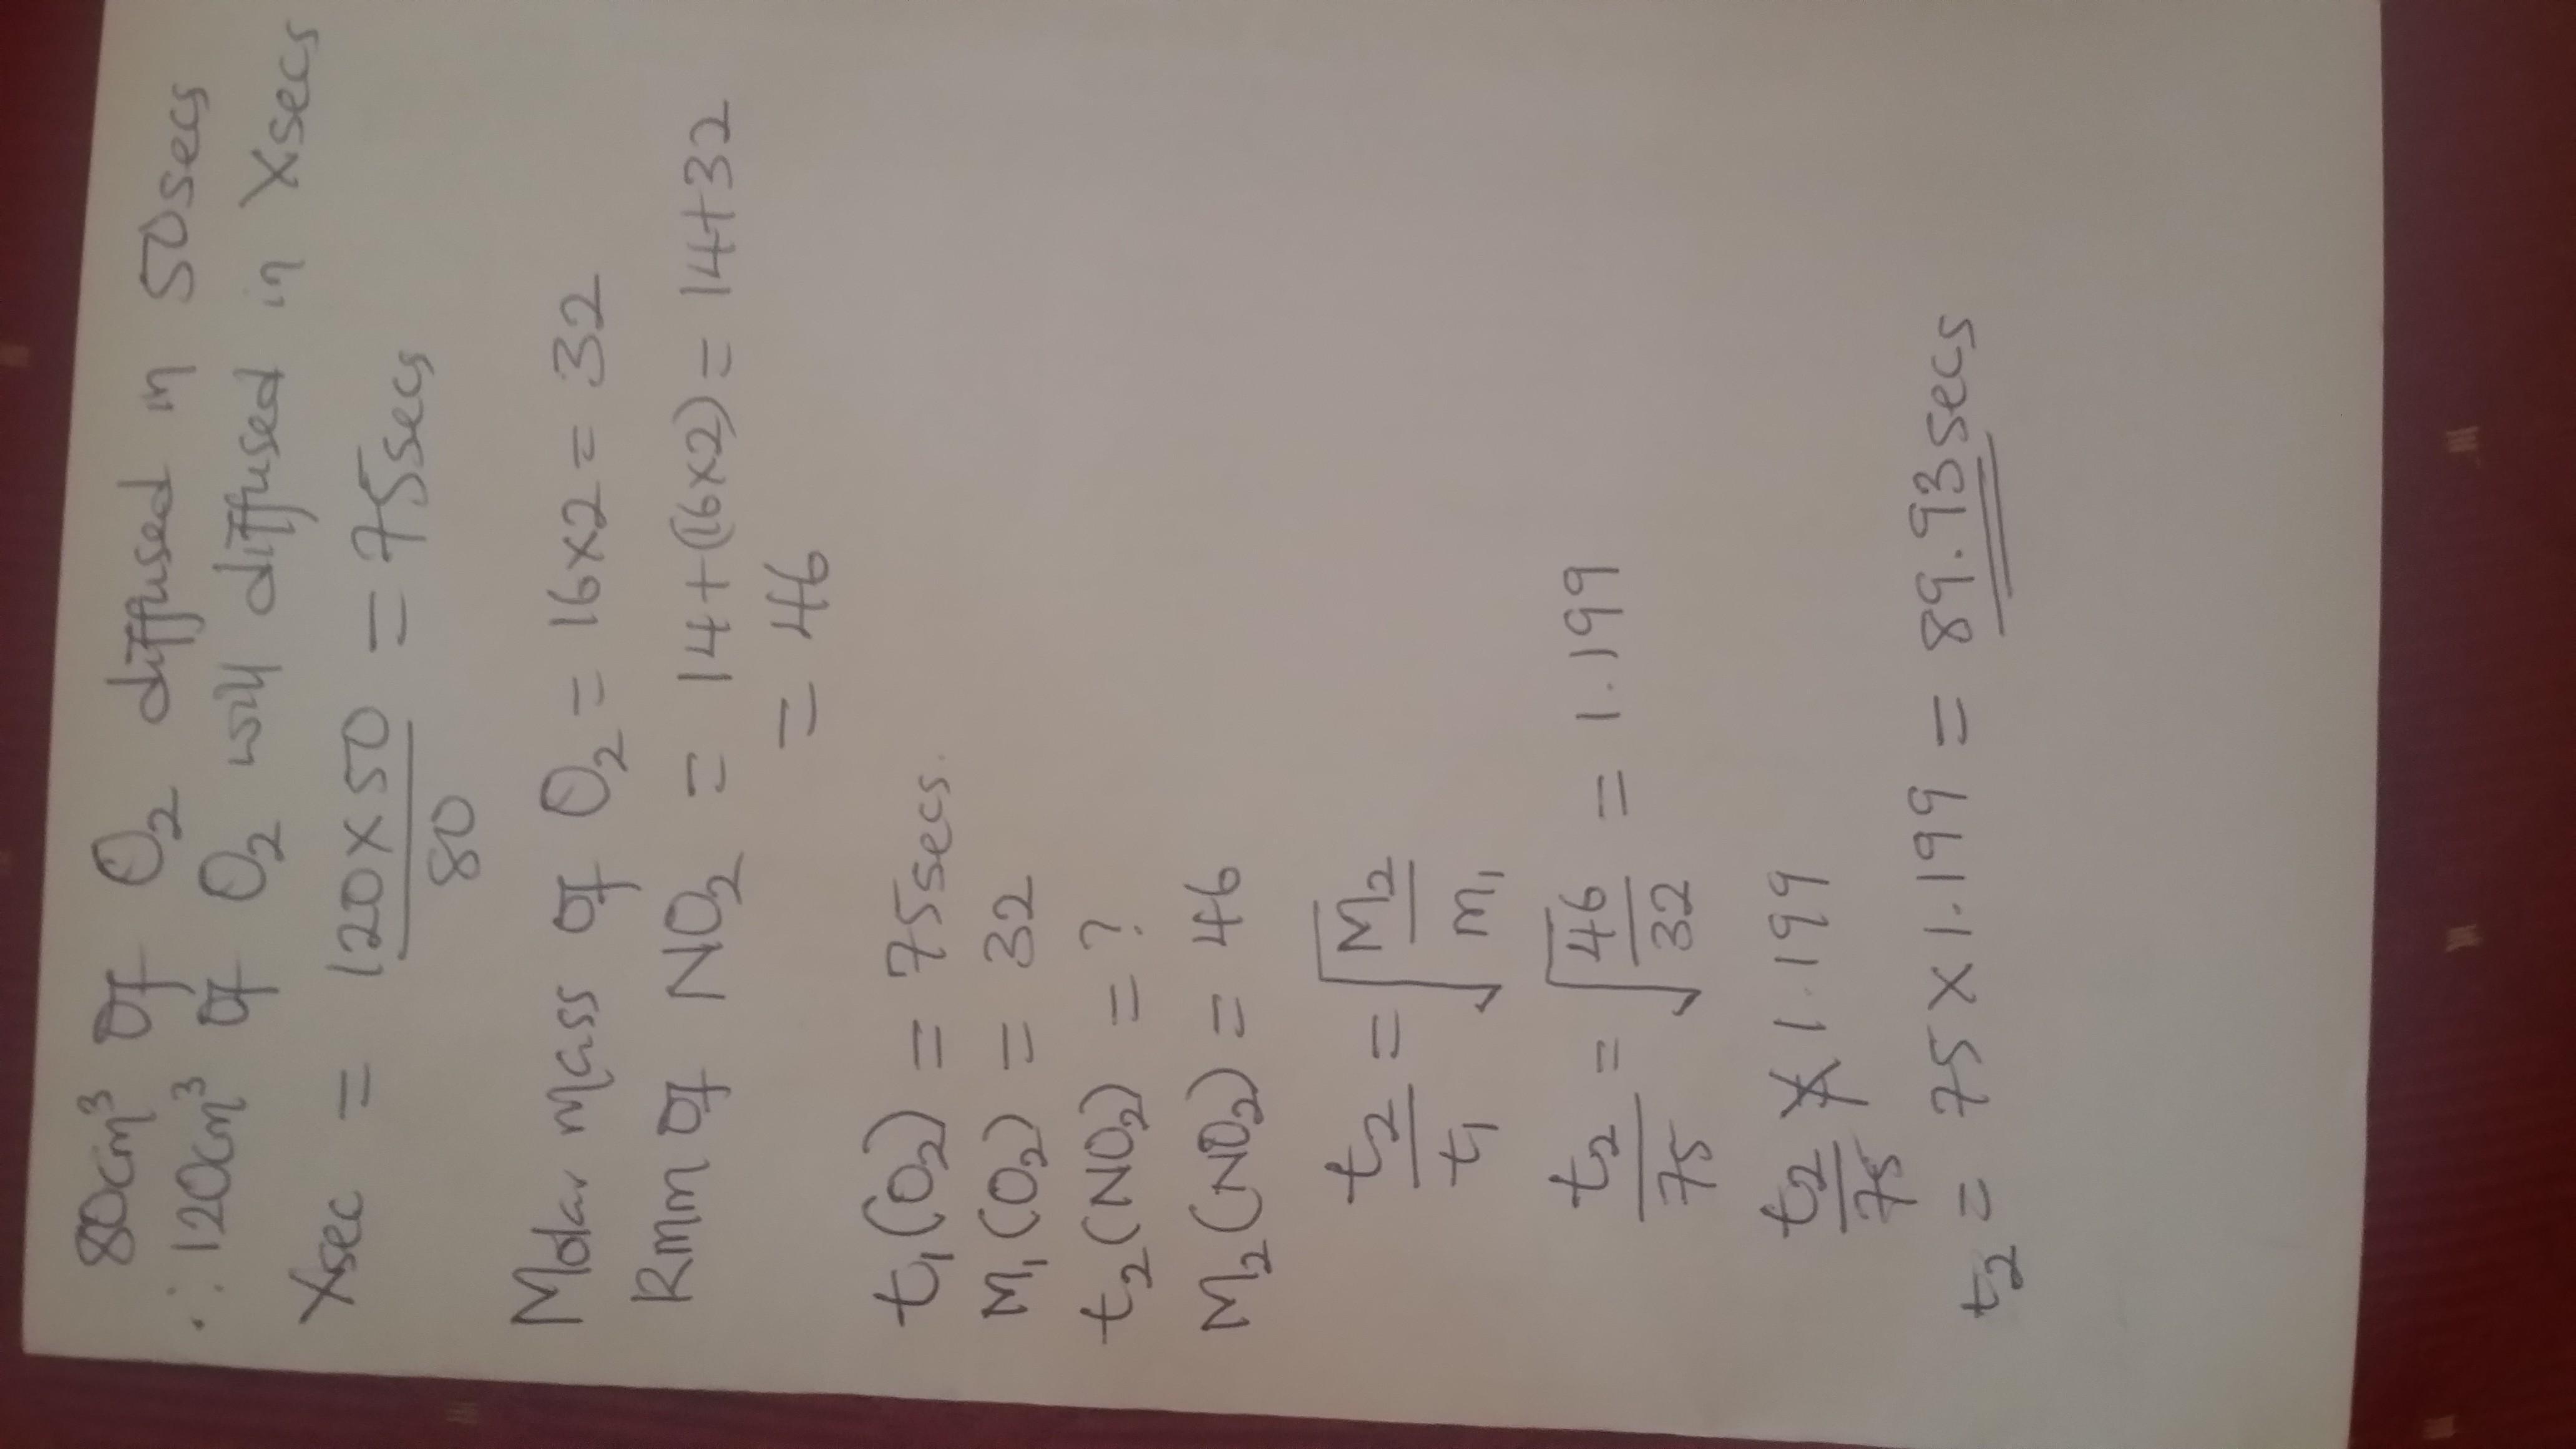 80cm³ of O₂ diffused in 50secs
∴ 120cm³ of O₂ will diffused in Xsecs
Xsec = 120 x 50 = 75secs
80
Molar mass of O₂ = 16x2 = 32
Rmm of NO₂ = 14+(16x2) = 14+32
= 46
t₁(O₂) = 75secs.
M₁(O₂) = 32
t₂(NO₂) = ?
M₂(NO₂) = 46
t₂/t₁ = √M₂/m₁
t₂/75 = √46/32 = 1.199
t₂/75 x 1.199
t₂ = 75 x 1.199 = 89.93secs